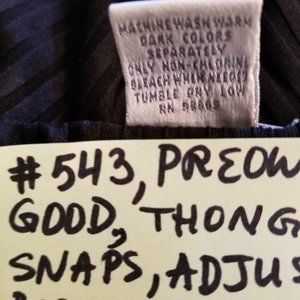 MACHINE WASH WARM
DARK COLORS
SEPARATELY
ONLY NON-CHLORINE
BLEACH WHEN NEEDED
TUMBLE DRY, LOW
#543, PREOW
GOOD, THONG
SNAPS, ADJUS